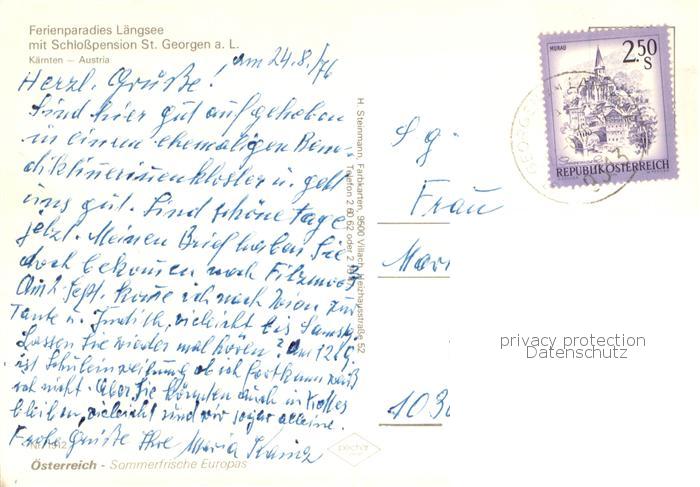 Ferienparadies Längsee
mit Schloßpension St. Georgen a. L.
Kärnten — Austria
am 24.8./76
Herzl. Grüße!
Sind hier gut aufgehoben
in einem ehemaligen Bene-
diktinerinnenkloster u. geht
uns gut. Sind schöne Tage
jetzt. Meinen Brief haben Sie
doch bekommen nach Filzmoos
Am Sept. komme ich nach Wien zur
Tante u. Judith, vieleicht bis Samstg.
Lassen Sie wieder mal hören? Am 12. 9.
ist Schuleinweihung ob ich fortkann weiß
ich nicht. Aber Sie könnten auch in Kaffee
bleiben, vieleicht sind wir sogar alleine.
Frohe Grüße Ihre Maria
Nr. 1312
Österreich - Sommerfrische Europas
H. Steinmann, Farbkarten, 9500 Villach, Heizhausstraße 52
Telefon 2 60 62 oder 2
MURAU
2.50
S
REPUBLIK ÖSTERREICH
S g.
Frau
Mari
1030
privacy protection
Datenschutz